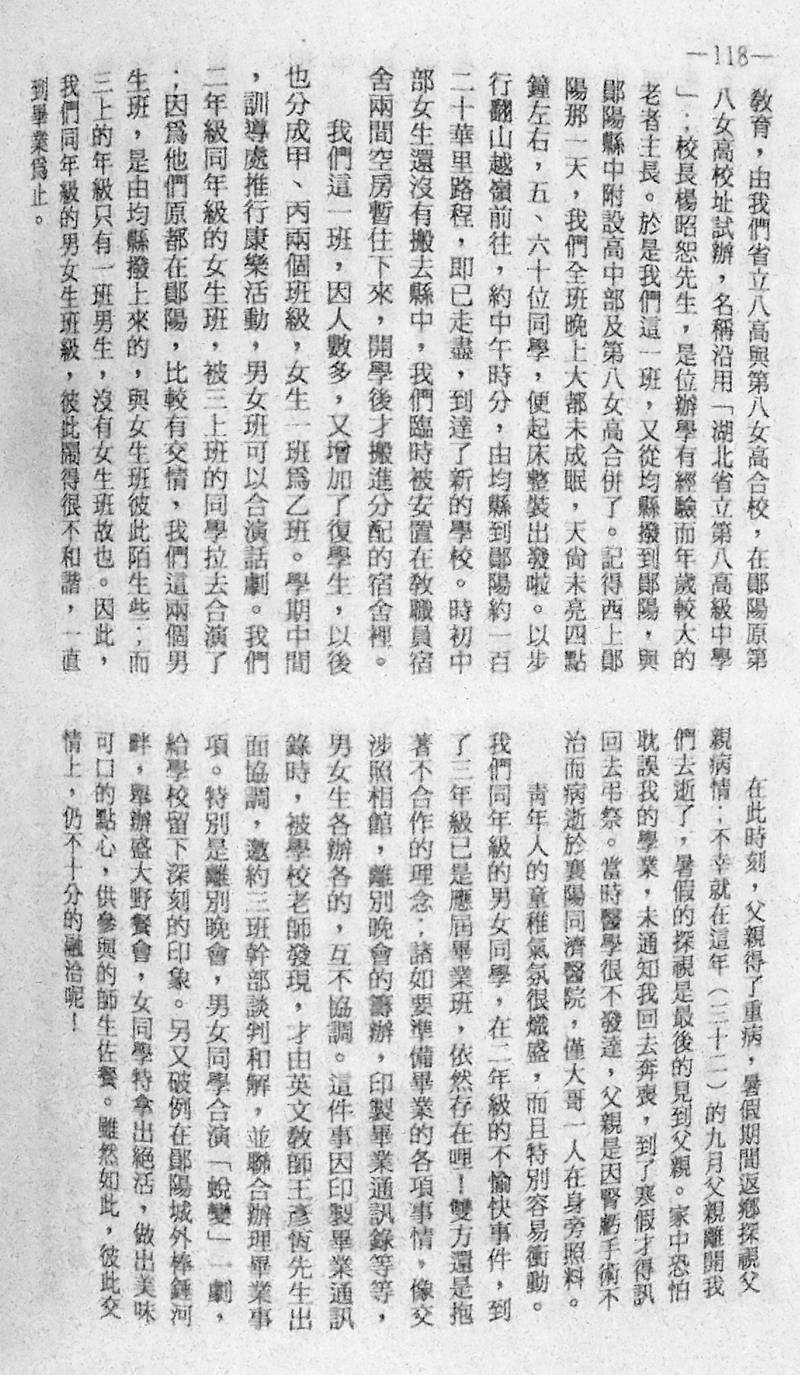 —118—
教育，由我們省立八高與第八女高合校，在鄖陽原第
八女高校址試辦，名稱沿用「湖北省立第八高級中學
」；校長楊昭恕先生，是位辦學有經驗而年歲較大的
老者主長。於是我們這一班，又從均縣撥到鄖陽，與
鄖陽縣中附設高中部及第八女高合併了。記得西上鄖
陽那一天，我們全班晚上大都未成眠，天尙未亮四點
鐘左右，五、六十位同學，便起床整裝出發啦。以步
行翻山越嶺前往，約中午時分，由均縣到鄖陽約一百
二十華里路程，即已走盡，到達了新的學校。時初中
部女生還沒有搬去縣中，我們臨時被安置在教職員宿
舍兩間空房暫住下來，開學後才搬進分配的宿舍裡。
我們這一班，因人數多，又增加了復學生，以後
也分成甲、丙兩個班級，女生一班爲乙班。學期中間
，訓導處推行康樂活動，男女班可以合演話劇。我們
二年級同年級的女生班，被三上班的同學拉去合演了
；因爲他們原都在鄖陽，比較有交情，我們這兩個男
生班，是由均縣撥上來的，與女生班彼此陌生些；而
三上的年級只有一班男生，沒有女生班故也。因此，
我們同年級的男女生班級，彼此鬧得很不和諧，一直
到畢業爲止。
在此時刻，父親得了重病，暑假期間返鄉探視父
親病情；不幸就在這年（三十二）的九月父親離開我
們去逝了，暑假的探視是最後的見到父親。家中恐怕
耽誤我的學業，未通知我回去奔喪，到了寒假才得訊
回去弔祭。當時醫學很不發達，父親是因腎虧手術不
治而病逝於襄陽同濟醫院，僅大哥一人在身旁照料。
靑年人的童稚氣氛很熾盛，而且特別容易衝動。
我們同年級的男女同學，在二年級的不愉快事件，到
了三年級已是應屆畢業班，依然存在哩！雙方還是抱
著不合作的理念；諸如要準備畢業的各項事情，像交
涉照相館，離別晚會的籌辦，印製畢業通訊錄等等，
男女生各辦各的，互不協調。這件事因印製畢業通訊
錄時，被學校老師發現，才由英文教師王彥恆先生出
面協調，邀約三班幹部談判和解，並聯合辦理畢業事
項。特別是離別晚會，男女同學合演「蛻變」一劇，
給學校留下深刻的印象。另又破例在鄖陽城外棒錘河
畔，舉辦盛大野餐會，女同學特拿出絕活，做出美味
可口的點心，供參與的師生佐餐。雖然如此，彼此交
情上，仍不十分的融洽呢！